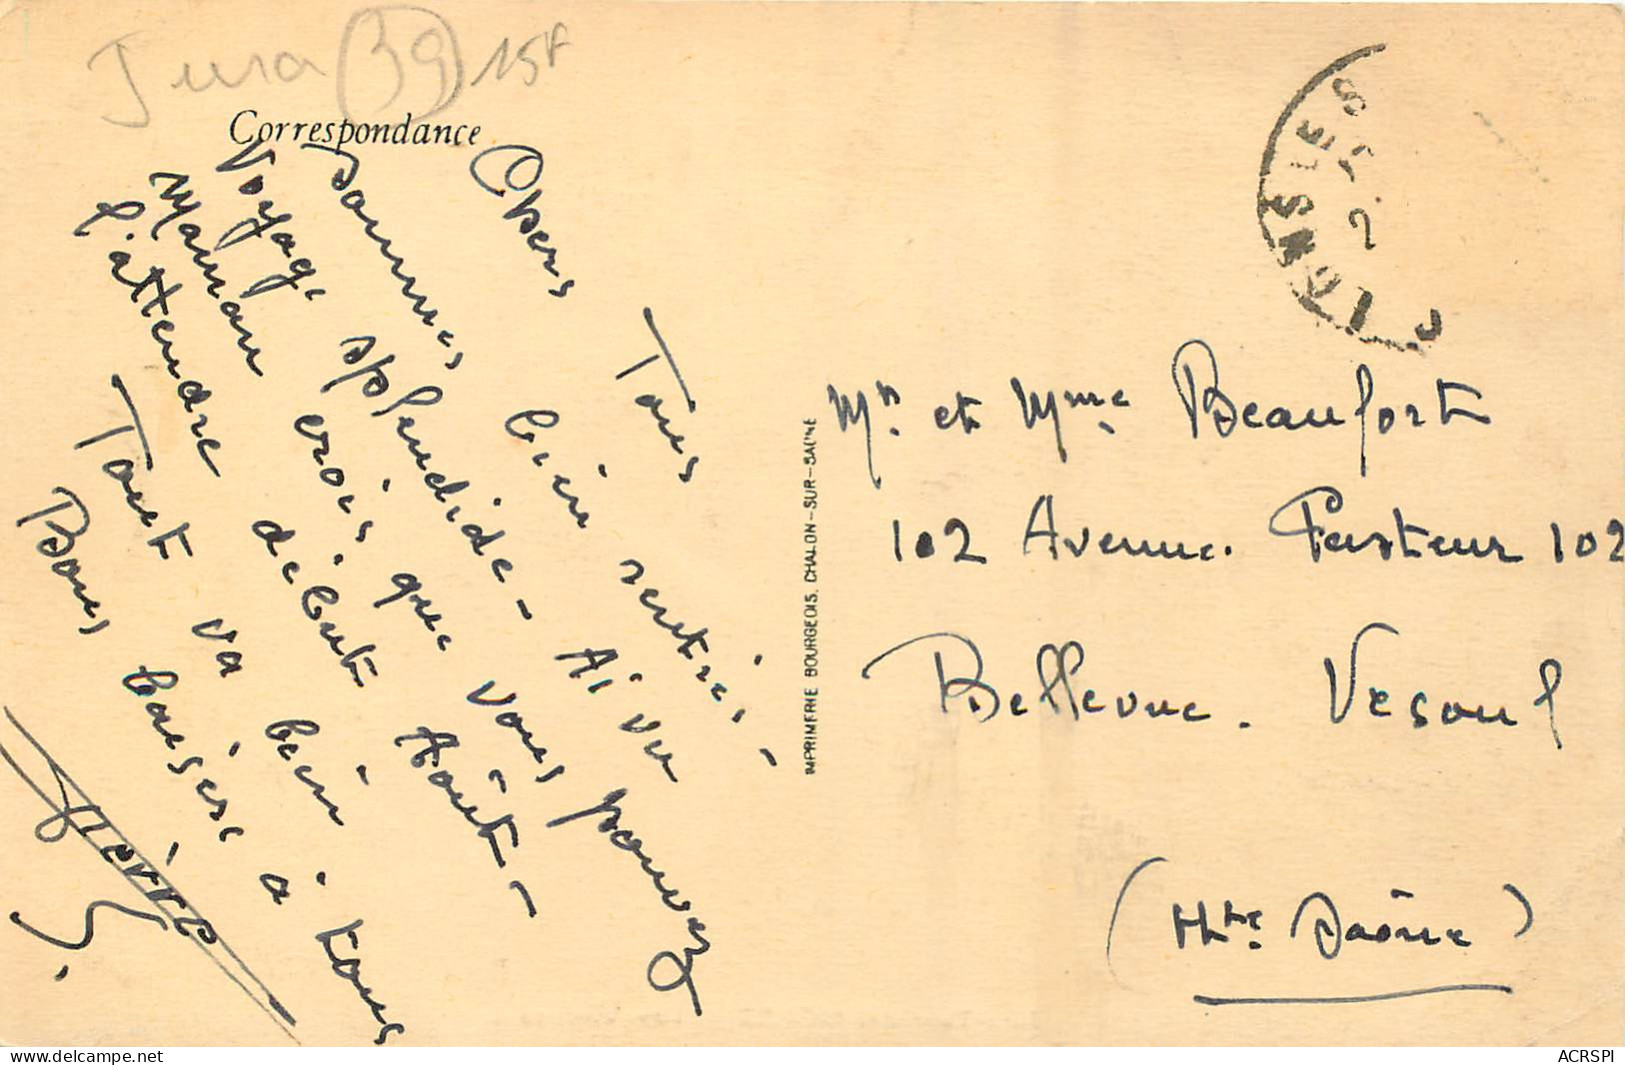 Jura (39) 15F
Correspondance
Chers Tous
Sommes bien rentrés -
Voyage splendide - Ai vu
Maman crois que vous pouvez
l'attendre début Août -
Tout va bien
Bons baisers à tous
Pierre
IMPRIMERIE BOURGEOIS, CHALON-SUR-SAONE
Mr. et Mme Beaufort
102 Avenue. Pasteur 102
Bellevue. Vesoul
(Hte Saône)
www.delcampe.net
ACRSPI